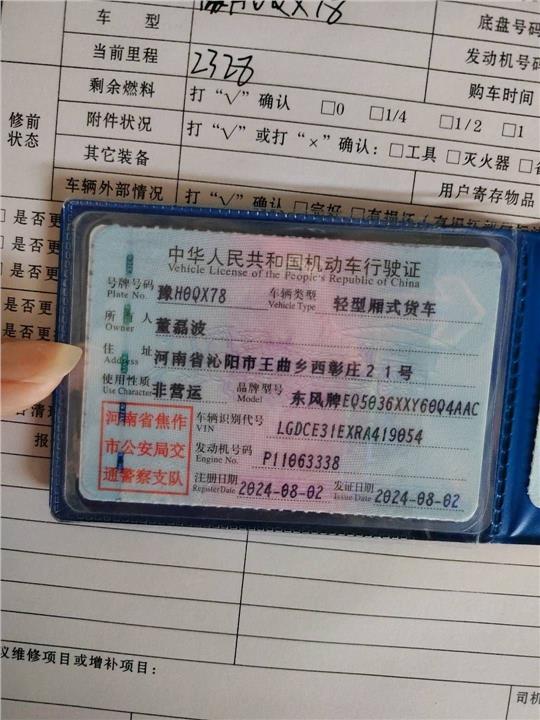 车 型
豫H0QX78
底盘号码
当前里程
2328
发动机号码
剩余燃料
打“√”确认 □0 □1/4 □1/2 □1
购车时间
修前状态
附件状况
打“√”或打“×”确认：□工具 □灭火器 □
其它装备
车辆外部情况
打“√”确认 □完好 □有损坏
用户寄存物品
是否更
是否更
是否更
是否更
中华人民共和国机动车行驶证
Vehicle License of the People's Republic of China
号牌号码 Plate No. 豫H0QX78 车辆类型 Vehicle Type 轻型厢式货车
所有人 Owner 董磊波
住址 Address 河南省沁阳市王曲乡西彰庄21号
使用性质 Use Character 非营运 品牌型号 Model 东风牌EQ5036XXY60Q4AAC
河南省焦作
市公安局交
通警察支队
车辆识别代号 VIN LGDCE31EXRA419054
发动机号码 Engine No. P11063338
注册日期 Register Date 2024-08-02 发证日期 Issue Date 2024-08-02
议维修项目或增补项目：
司机